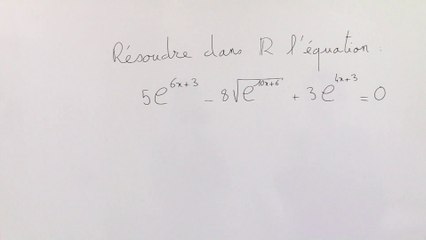 Résoudre dans ℝ l'équation :
5e^{6x+3} - 8√(e^{10x+6}) + 3e^{4x+3} = 0